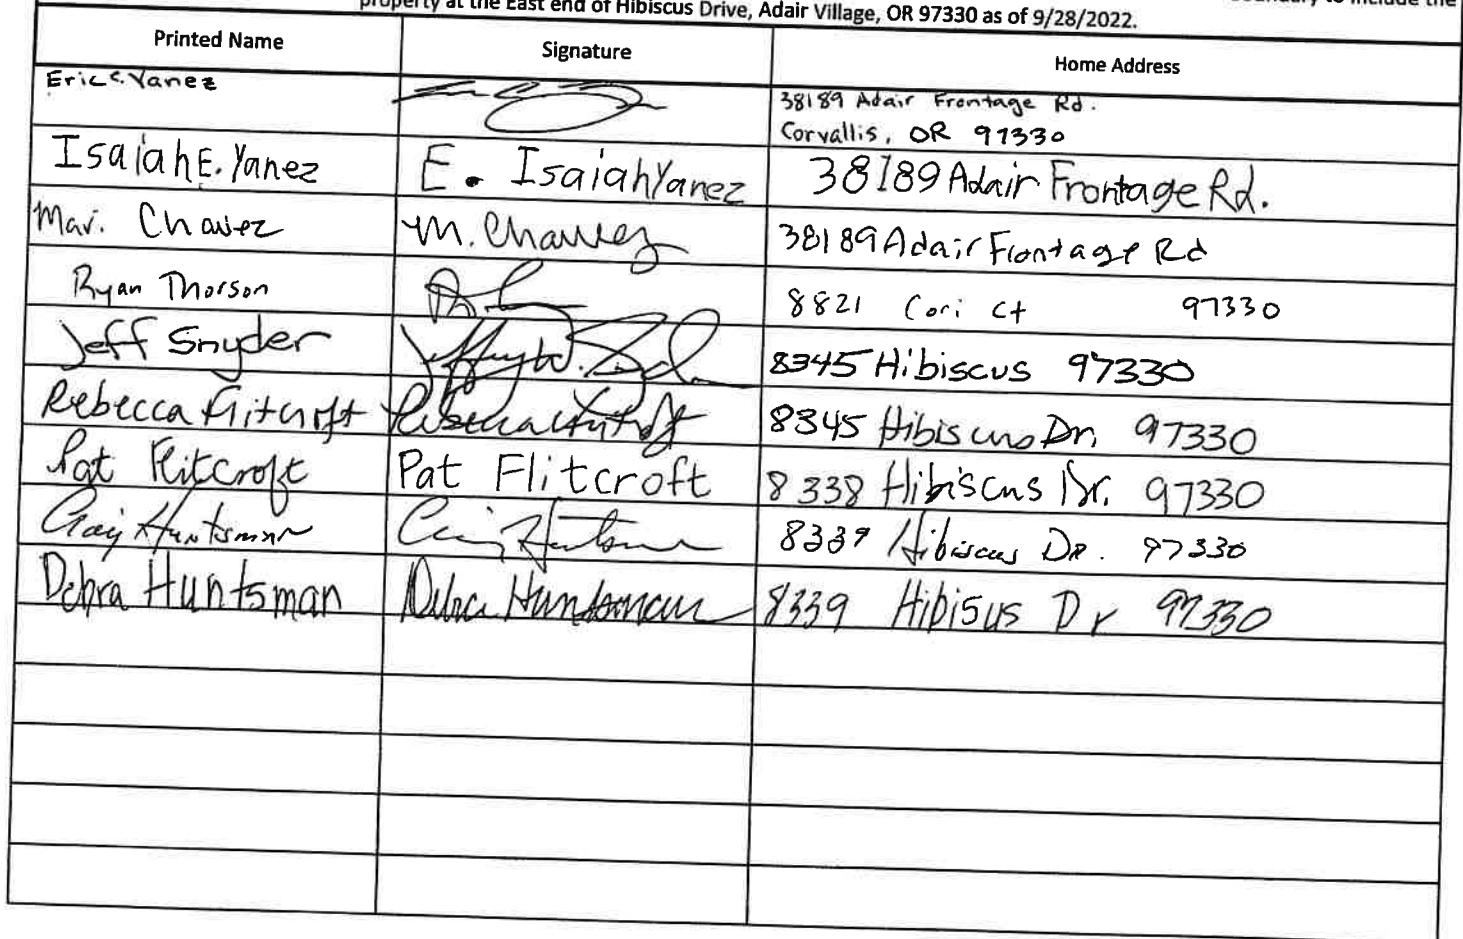 boundary to include the
property at the East end of Hibiscus Drive, Adair Village, OR 97330 as of 9/28/2022.
Printed Name Signature Home Address
Eric C. Yanez 38189 Adair Frontage Rd.
Corvallis, OR 97330
Isaiah E. Yanez E. Isaiah Yanez 38189 Adair Frontage Rd.
Mari. Chavez M. Chavez 38189 Adair Frontage Rd
Ryan Thorson 8821 Cori Ct 97330
Jeff Snyder Jeffrey W. Snyder 8345 Hibiscus 97330
Rebecca Flitcroft Rebecca Flitcroft 8345 Hibiscus Dr. 97330
Pat Flitcroft Pat Flitcroft 8338 Hibiscus Dr. 97330
Craig Huntsman Craig Huntsman 8339 Hibiscus Dr. 97330
Debra Huntsman Debra Huntsman 8339 Hibisus Dr 97330